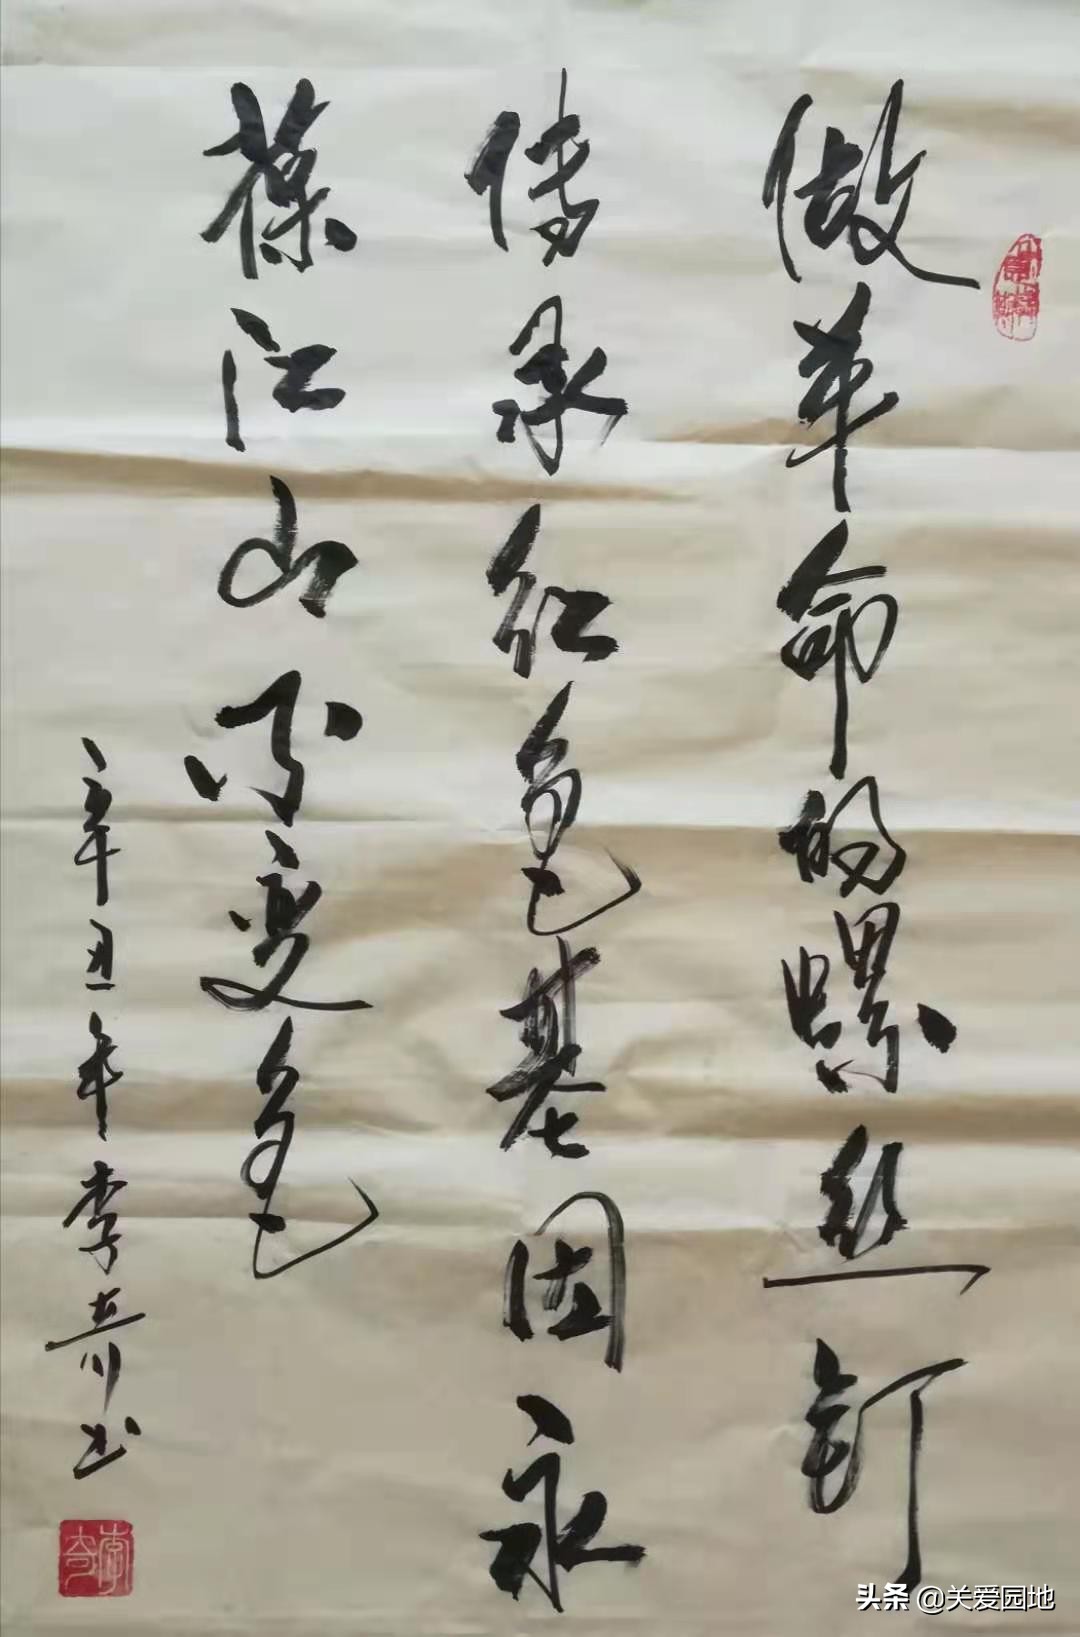 做革命的螺丝钉
传承红色基因永
葆江山不变色
辛丑年李书
头条 @关爱园地